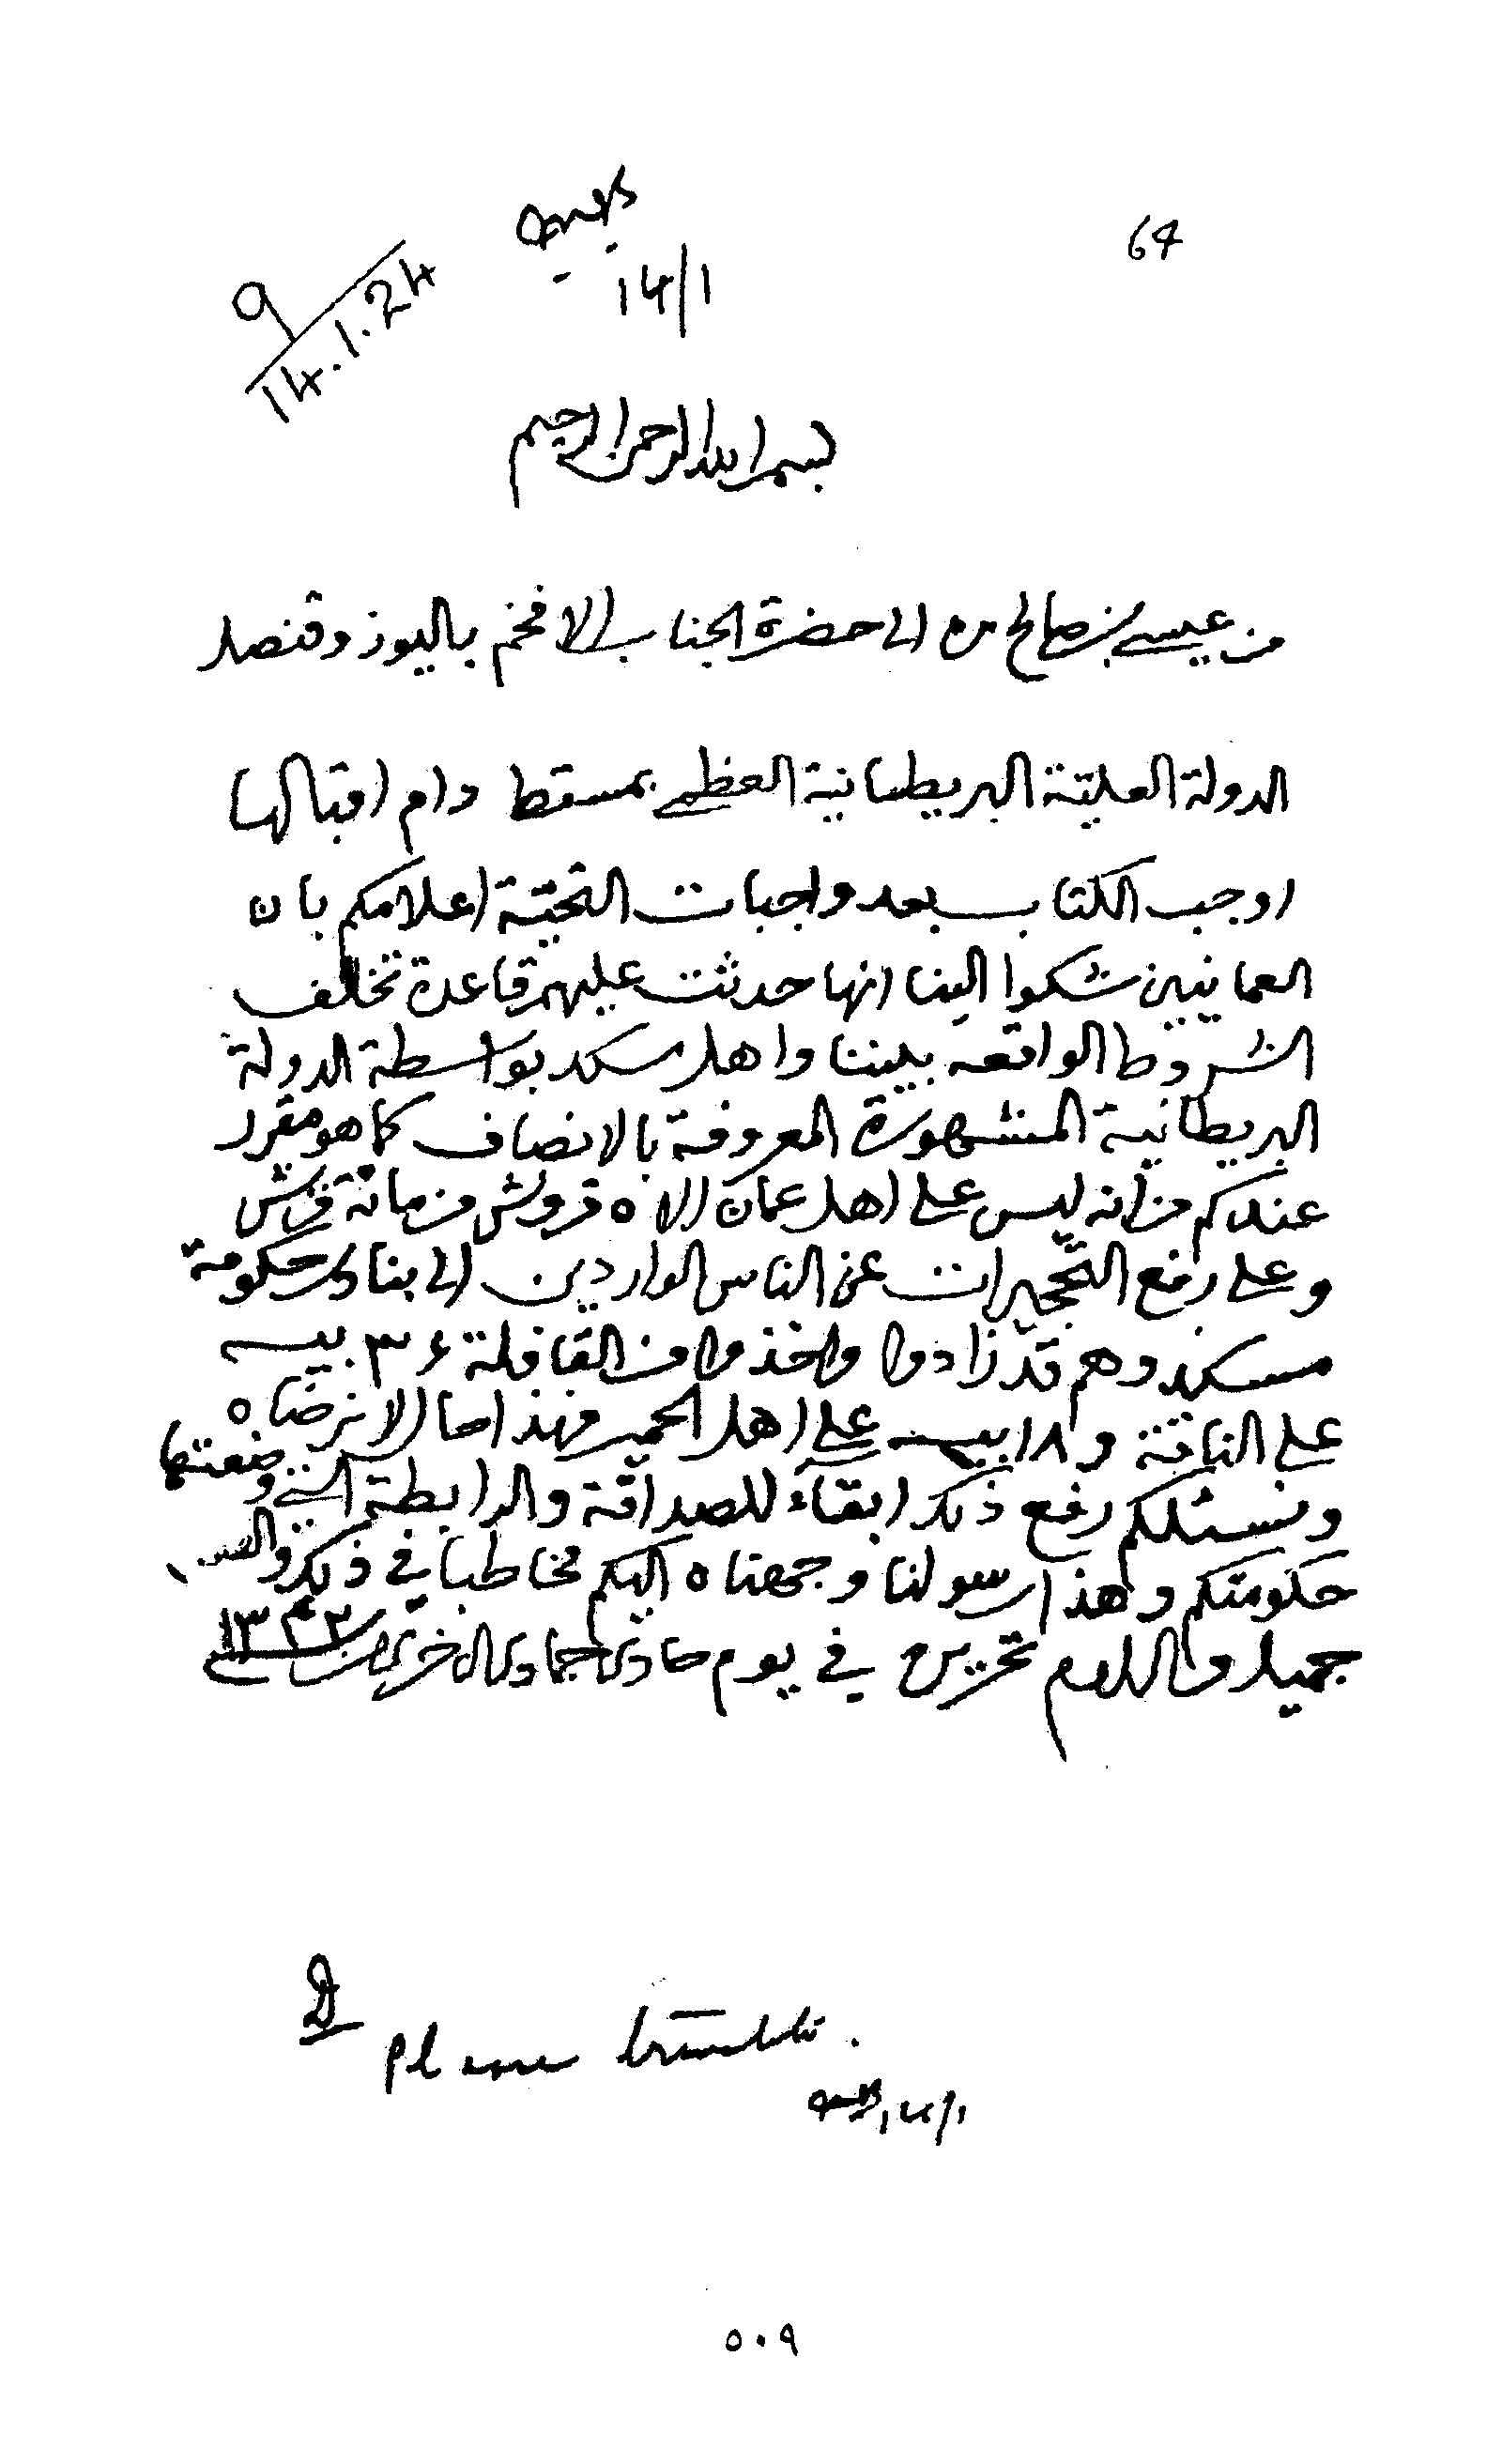 64
14/1
9
14.1.24
بسم الله الرحمن الرحيم
من عيسى بن صالح الى حضرة الجناب الافخم باليوز وقنصل
الدولة العليّة البريطانية العظمى بمسقط دام اقبالها
اوجب الكتاب بعد واجبات التحيّة اعلامكم بان
العمانيين شكوا الينا انها حدثت عليهم قاعدة تخالف
الشروط الواقعه بيننا واهل مسكد بواسطة الدولة
البريطانية المشهورة المعروفة بالانصاف كما هو مقرر
عندكم من انه ليس على اهل عمان الا ٥ قروش من مائة قرش
وعلى رفع التحجيرات عن الناس الواردين الى بنادر حكومة
مسكد وهم قد زادوا واخذوا من القافلة ٣٦ بيسه
على الناقة و ١٨ بيسه على اهل الحمير فهذا حال لا نرضاه
ونسئلكم رفع ذلك ابقاءً للصداقة والرابطة التي وضعتها
حكومتكم وهذا رسولنا وجهناه اليكم مخاطبا في ذلك والصبر
جميل والسلام تحرير في يوم حادى جمادى الاخرى سنة ١٣٤٢
Please translate.
14/1
٥٠٩